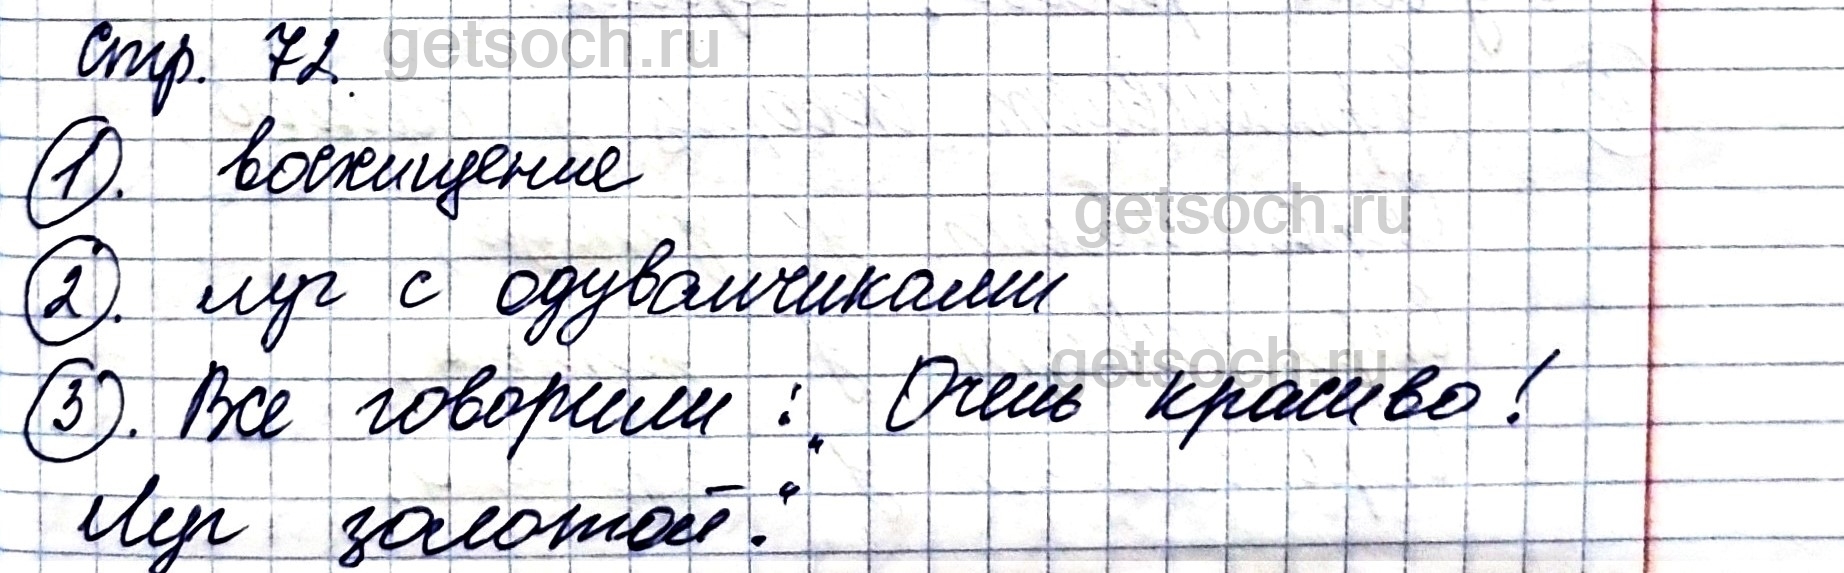 Стр. 72. getsoch.ru
1. восхищение
getsoch.ru
2. луг с одуванчиками
getsoch.ru
3. Все говорили: „Очень красиво!
Луг золотой.“